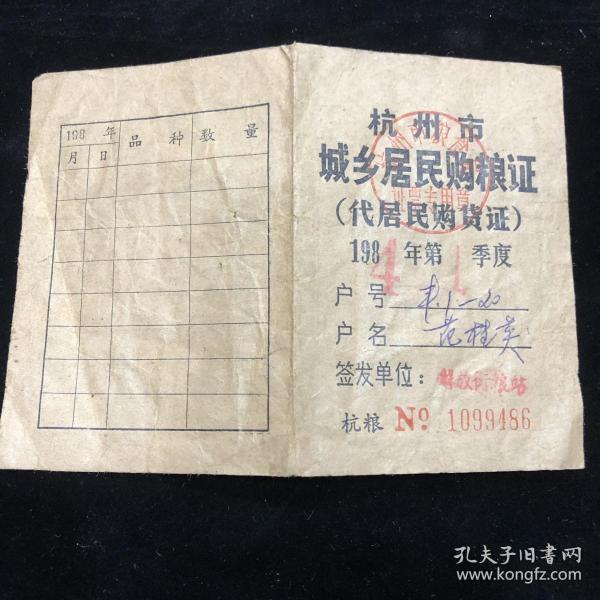 198 年
月 日 品 种 数 量
杭州市
城乡居民购粮证
(代居民购货证)
198 4 年第 1 季度
户号
户名 范桂英
签发单位: 解放街粮站
杭粮 No 1099486
孔夫子旧书网
www.kongfz.com